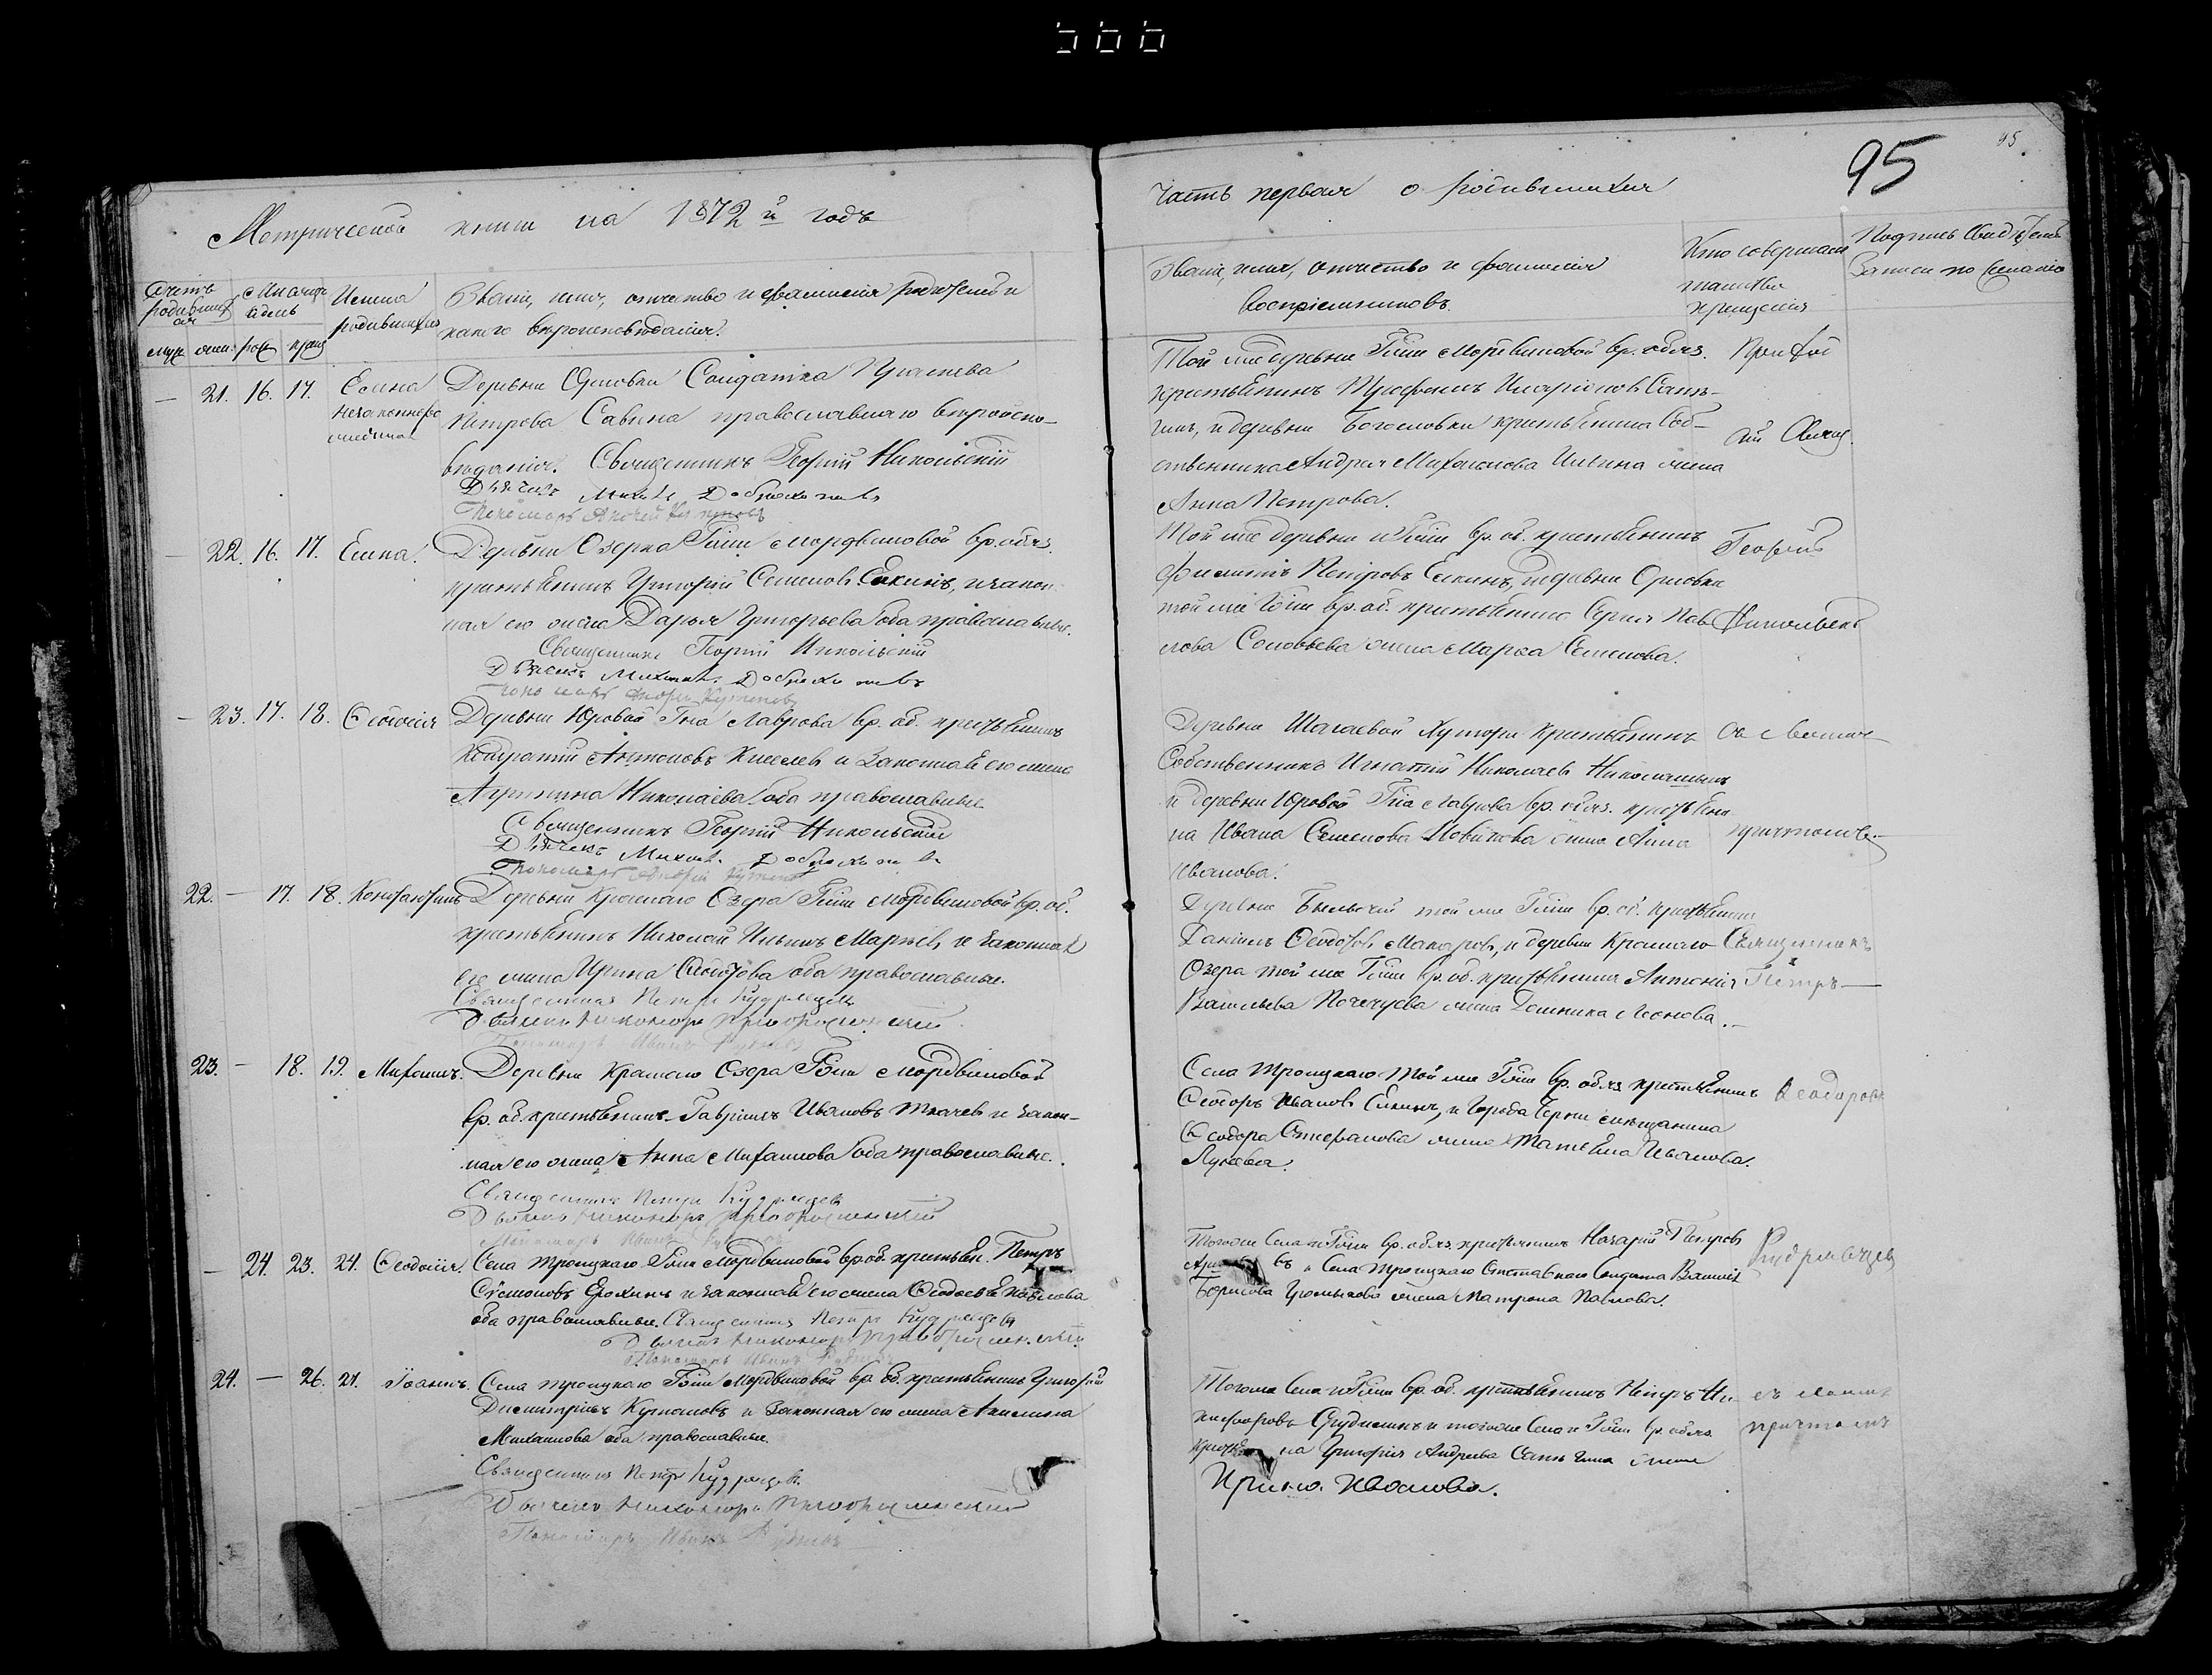 95
95
Метрической книги на 1872 й годъ
Часть первая о родившихся
Счетъ родившихся
Мѣсяцъ и день
Имена родившихся
Званіе, имя, отчество и фамилія родителей и
какого вѣроисповѣданія.
Званіе, имя, отчество и фамилія
воспріемниковъ.
Кто совершалъ
таинство
крещенія
Подпись свидѣтелей
записи по желанію
муж жен. рож крещ
— 21. 16. 17. Елена
незаконнорожденная
Деревни Орловки Солдатка
Петрова Савина православнаго вѣроиспо-
вѣданія. Священникъ Георгій Никольскій
Дьячекъ Михаил Доброхотовъ
Пономарь Андрей Кутеповъ
Той же деревни Гжи Мордвиновой вр. обяз.
крестьянинъ Трифонъ Иларіоновъ Саль-
гинъ, и деревни Богословки крестьянина Соб-
ственника Андрея Михайлова Ильина жена
Анна Петрова.
— 22. 16. 17. Елена.
Деревни Озерка Гжи Мордвиновой вр. обяз.
крестьянинъ Григорій Семеновъ Елкинъ, и закон-
ная его жена Дарья Григорьева оба православные.
Священникъ Георгій Никольскій
Дьячекъ Михаил Доброхотовъ
Пономарь Андрей Кутеповъ
Той же деревни и Гжи вр. об. крестьянинъ
Филиппъ Петровъ Елкинъ, и деревни Орловки
той же Гжи вр. об. крестьянина Сергея Пав-
лова Соловьева жена Марѳа Семенова.
Георгій
Никольскій
— 23. 17. 18. Ѳеодосія
Деревни Юровой Гна Лаврова вр. об. крестьянинъ
Кондратій Антоновъ Киселевъ и законная его жена
Агрипина Николаева оба православные
Священникъ Георгій Никольскій
Дьячекъ Михаил Доброхотовъ
Пономарь Андрей Кутеповъ
Деревни Шагаевой Хутора крестьянинъ
Собственникъ Игнатій Николаевъ Николашинъ
и деревни Юровой Гна Лаврова вр. обяз. крестьяни-
на Ивана Семенова Новикова жена Анна
Иванова.
съ своимъ
причтомъ
22. — 17. 18. Константинъ
Деревни Краснаго Озера Гжи Мордвиновой вр. об.
крестьянинъ Николай Ильинъ Марьевъ, и законная
его жена Ирина Ѳеодотова оба православные.
Священникъ Петръ Кудрявцевъ
Дьячекъ Никаноръ Преображенскій
Пономарь Иванъ
Деревни той же Гжи вр. об. крестьянинъ
Даніилъ Ѳеодотовъ Макаровъ, и деревни Краснаго
Озера той же Гжи вр. об. крестьянина Антонія
Васильева Почечуева жена Домника Леонова.
Священникъ
Петръ
23. — 18. 19. Михаилъ.
Деревни Краснаго Озера Гжи Мордвиновой
вр. об. крестьянинъ Гавріилъ Ивановъ Ткачевъ и закон-
ная его жена Анна Михаилова оба православные.
Священникъ Петръ Кудрявцевъ
Дьячекъ Никаноръ Преображенскій
Пономарь Иванъ
Села Троицкаго той же Гжи вр. обяз крестьянинъ
Ѳеодоръ Ивановъ Елкинъ, и города Черни мѣщанина
Ѳеодора Стефанова жена Татьяна Иванова.
Лукьева.
Ѳеодоровъ
— 24. 23. 24. Ѳеодосія.
Села Троицкаго Гжи Мордвиновой вр. об. крестьян. Петръ
Ерохинъ и законная его жена Ѳеодосья Павлова
оба православные. Священникъ Петръ Кудрявцевъ
Дьячекъ Никаноръ Преображенскій
Пономарь Иванъ
Того же Села и Гжи вр. обяз. крестьянинъ Назарій Петровъ
въ и Села Троицкаго Отставнаго Солдата Василія
Борисова Громыхова жена Матрона Павлова.
Кудрявцевъ
24. — 26. 27. Іоаннъ.
Села Троицкаго Гжи Мордвиновой вр об. крестьянинъ Григорій
Димитріевъ Кутановъ и Законная его жена Акилина
Михаилова оба православные.
Священникъ Петръ Кудрявцевъ
Дьячекъ Никаноръ Преображенскій
Пономарь Иванъ
Того же Села и Гжи вр. об. крестьянинъ Петръ Ни-
кифоровъ и того же Села и Гжи вр. обяз.
на Григорія Андреева жена
Ирина Иванова.
съ своимъ
причтомъ